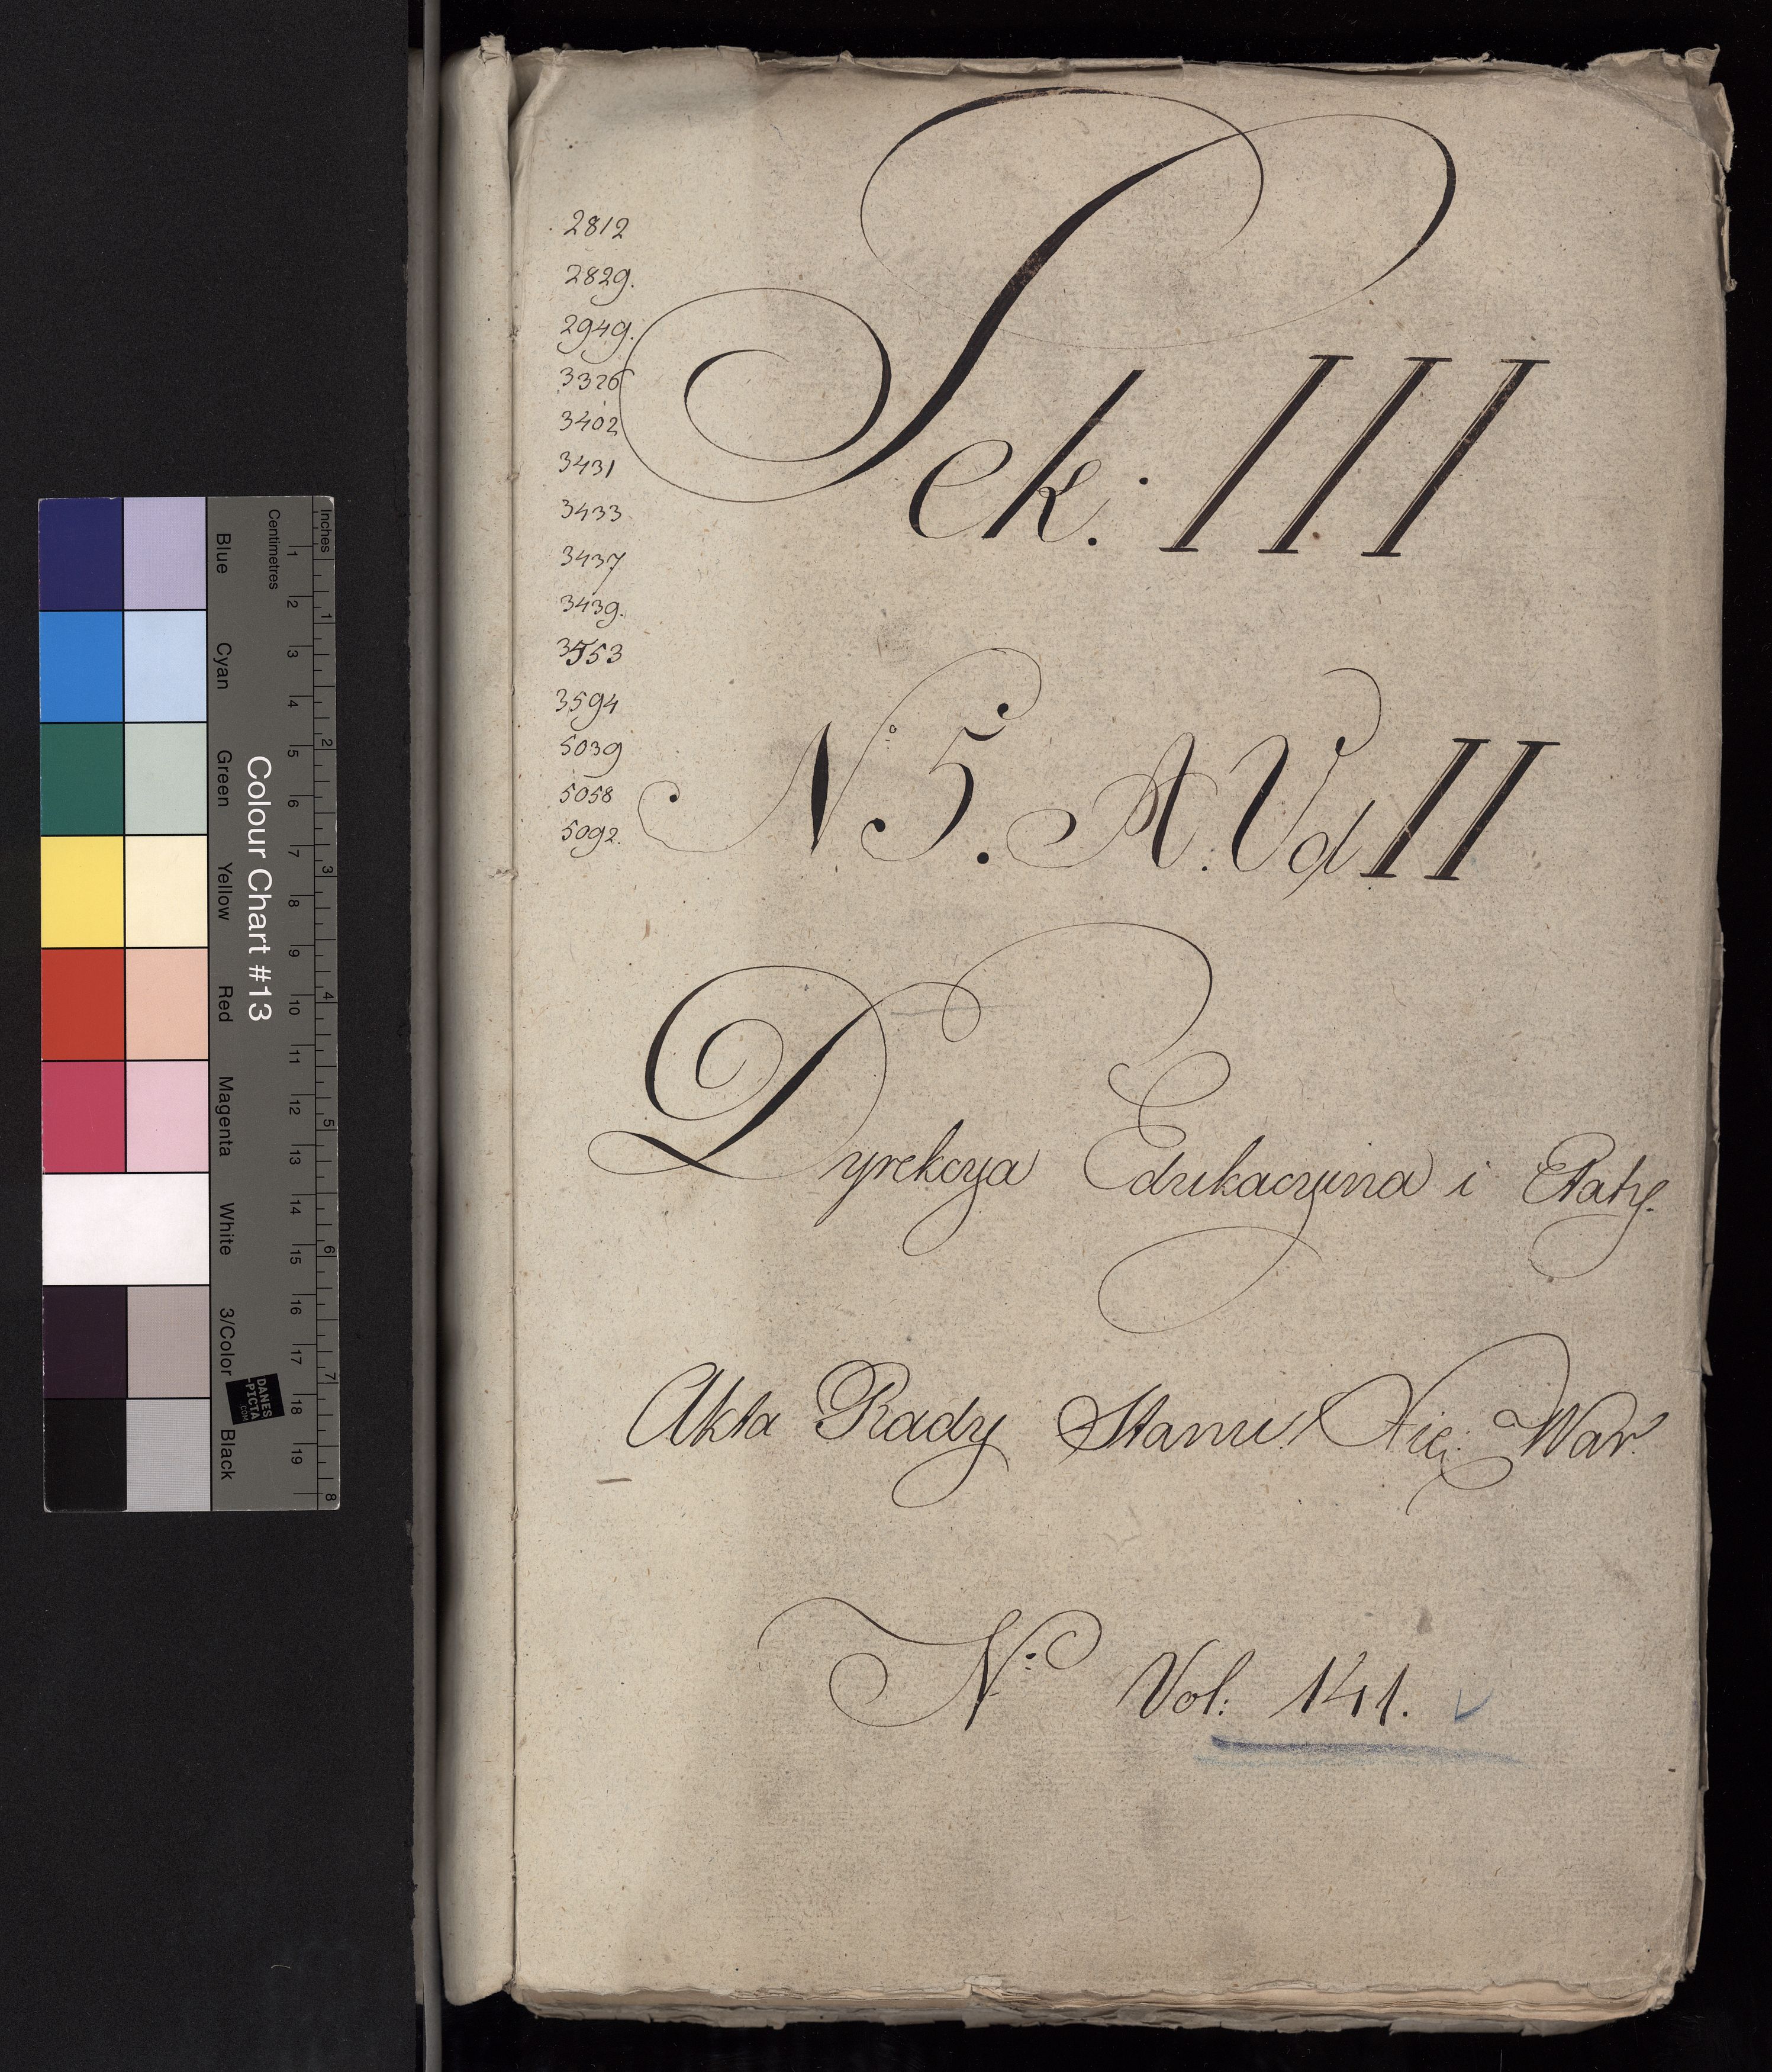 2812
2829.
2949.
3326
3402
3431
3433
3437
3439.
3553
3594
5039
5058
5092.
Sek: III
No 5. A. Vd II
Dyrekcya Edukacyina i Etaty.
Akta Rady Stanu Xię: War.
No Vol: 141.
Inches
Centimetres
Colour Chart #13
Blue
Cyan
Green
Yellow
Red
Magenta
White
3/Color
Black
DANES
-PICTA
.COM
1 2 3 4 5 6 7 8 9 10 11 12 13 14 15 16 17 18 19
1 2 3 4 5 6 7 8